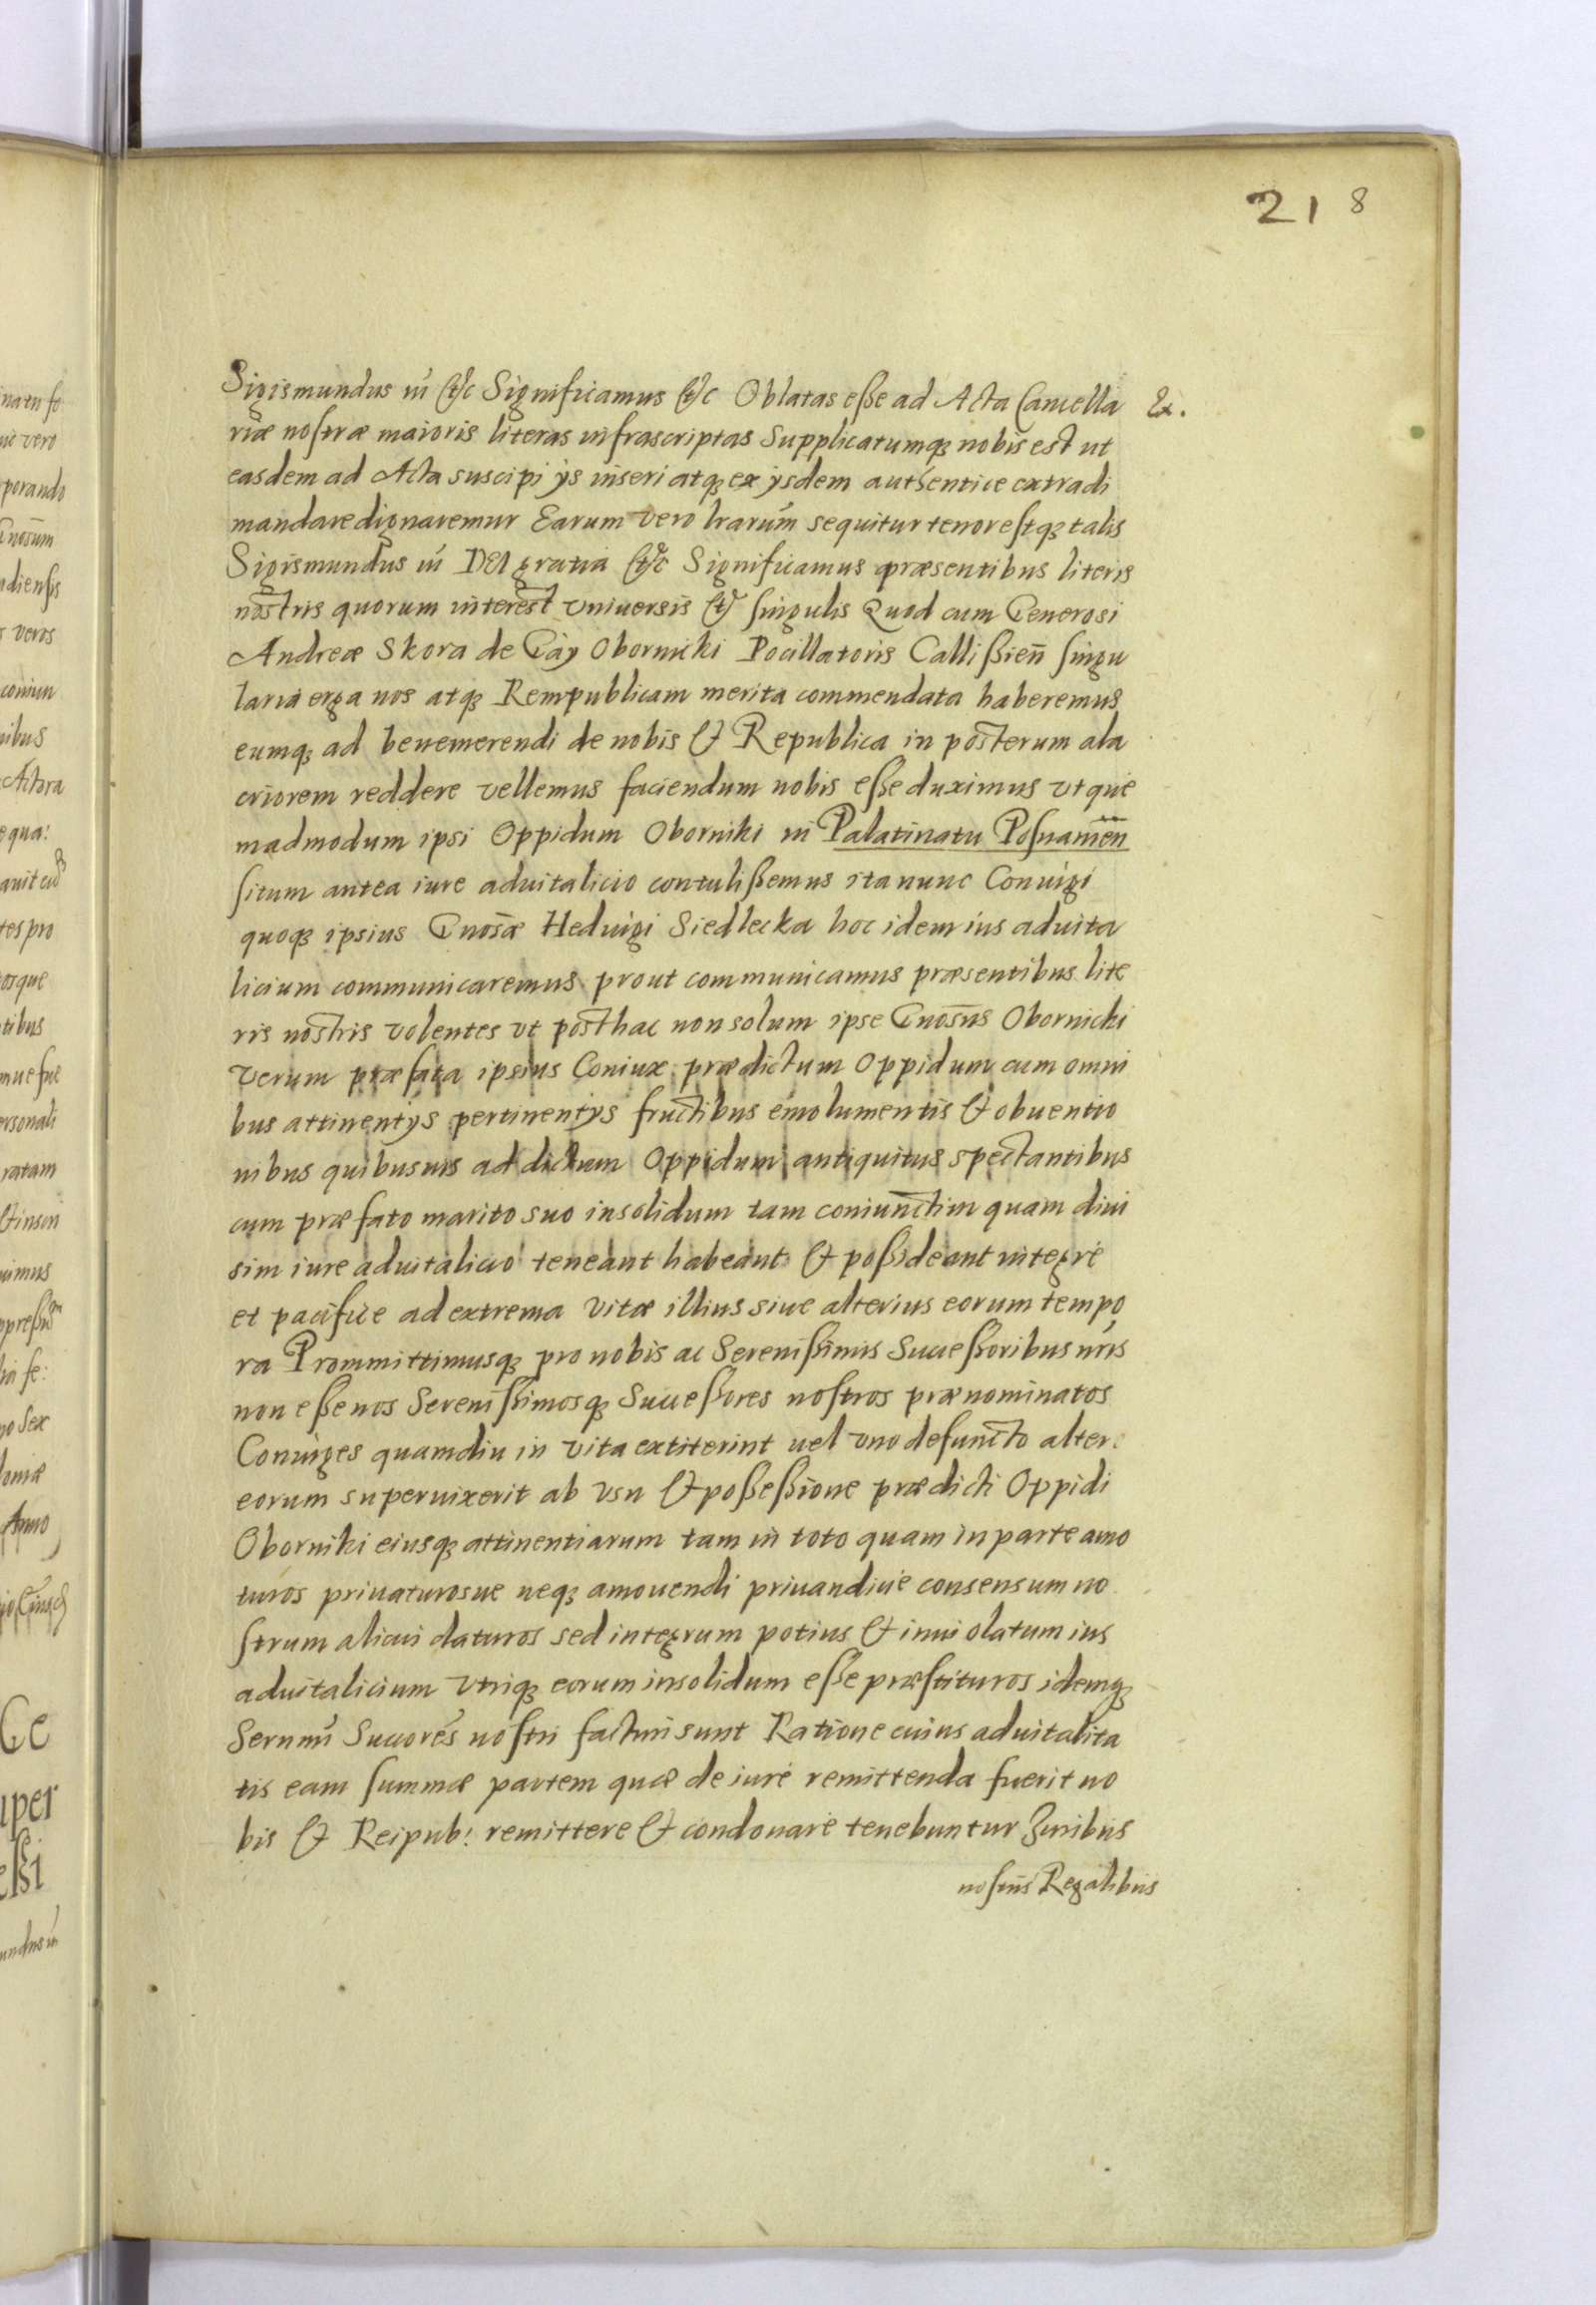 218
Sigismundus iii &c Significamus &c Oblatas esse ad Acta Cancella &.
riæ nostræ maioris literas infrascriptas Supplicatumq3 nobis est ut
easdem ad Acta suscipi ijs inseri atq3 ex ijsdem authentice extradi
mandare dignaremur Earum vero lrarum sequitur tenor estq3 talis
Sigismundus iii DEI gratia &c Significamus præsentibus literis
nostris quorum interest vniuersis & singulis Quod cum Generosi
Andreæ Skora de Gay Obornicki Pocillatoris Callissien̄ singu
laria erga nos atq3 Rempublicam merita commendata haberemus
eumq3 ad benemerendi de nobis & Republica in posterum ala
criorem reddere vellemus faciendum nobis esse duximus vt que
madmodum ipsi Oppidum Oborniki in Palatinatu Posnamen̄
situm antea iure aduitalicio contulissemus ita nunc Coniugi
quoq3 ipsius Gnosæ Heduigi Siedlecka hoc idem ius aduita
licium communicaremus prout communicamus præsentibus lite
ris nostris volentes vt posthac non solum ipse Gnosus Obornicki
verum præfata ipsius Coniux prædictum Oppidum cum omni
bus attinentijs pertinentijs fructibus emolumentis & obuentio
nibus quibusuis ad dictum Oppidum antiquitus spectantibus
cum præfato marito suo insolidum tam coniunctim quam diui
sim iure aduitalicio teneant habeant & possideant integre
et pacifice ad extrema vitæ illius siue alterius eorum tempo
ra Prommittimusq3 pro nobis ac Serenissimis Successoribus nris
non esse nos Serenissimosq3 Successores nostros prænominatos
Coniuges quamdiu in vita extiterint uel vno defuncto alter
eorum superuixerit ab vsu & possessione prædicti Oppidi
Oborniki eiusq3 attinentiarum tam in toto quam in parte amo
turos priuaturosue neq3 amouendi priuandiue consensum no
strum alicui daturos sed integrum potius & inuiolatum ius
aduitalicium vtriq3 eorum insolidum esse præstituros idemq3
Sernmi Succores nostri facturi sunt Ratione cuius aduitalita
tis eam summæ partem quæ de iure remittenda fuerit no
bis & Reipub: remittere & condonare tenebuntur Juribus
nostris Regalibus